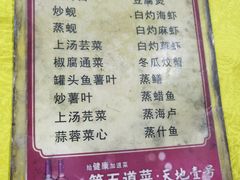 炒蚬
蒸蚬
上汤芸菜
椒腐通菜
罐头鱼薯叶
炒薯叶
上汤芫菜
蒜蓉菜心
豆腐煲
白灼海虾
白灼麻虾
冬瓜炆蟹
蒸鳝
蒸蜡鱼
蒸海卢
蒸什鱼
给健康加道菜
第五道菜·天地壹号